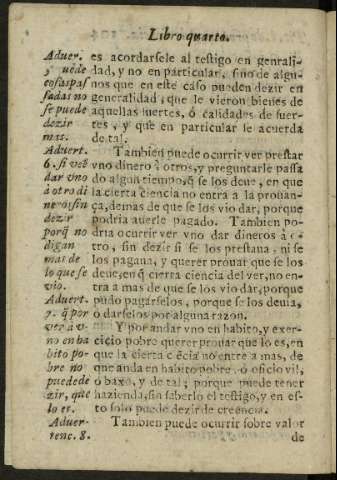 Libro quarto.
es acordarsele al testigo en genrali-
dad, y no en particular, sino de algu-
nos que en este caso pueden dezir en
generalidad, que le vieron bienes de
aquellas suertes, ò calidades de fuer-
tes, y que en particular le acuerda
de tal.
Tambien puede ocurrir ver prestar
vno dinero à otros, y preguntarle passa
do algun tiempo, q̃ se los deue, en que
la cierta ciencia no entra a la prouan-
ça, demas de que se los vio dar, porque
podria auerle pagado. Tambien po-
dria ocurrir ver vno dar dineros à o-
tro, sin dezir si se los prestaua, ni se
los pagaua, y querer prouar que se los
deue, en q̃ cierta ciencia del ver, no en-
tra a mas de que se los vio dar, porque
pudo pagarselos, porque se los deuia,
ò darselos por alguna razon.
Y por andar vno en habito, y exer-
cicio pobre querer prouar que lo es, en
que la cierta cẽcia no entra a mas, de
que anda en habito pobre, ò oficio vil,
ò baxo, y de tal; porque puede tener
hazienda, sin saberlo el testigo, y en es-
to solo puede dezir de creencia.
Tambien puede ocurrir sobre valor
de
Aduer.
5. uẽde
cosas pas
sadas no
se puede
dezir
mas.
Aduert.
6. si veẽ
dar vno
à otro di
nero, sin
dezir
porq̃ no
digan
mas de
lo que se
vio.
Aduert.
7. q̃ por
ver à v-
no en ha
bito po-
bre no
puede de
zir, que
lo es.
Aduer-
tenc. 8.